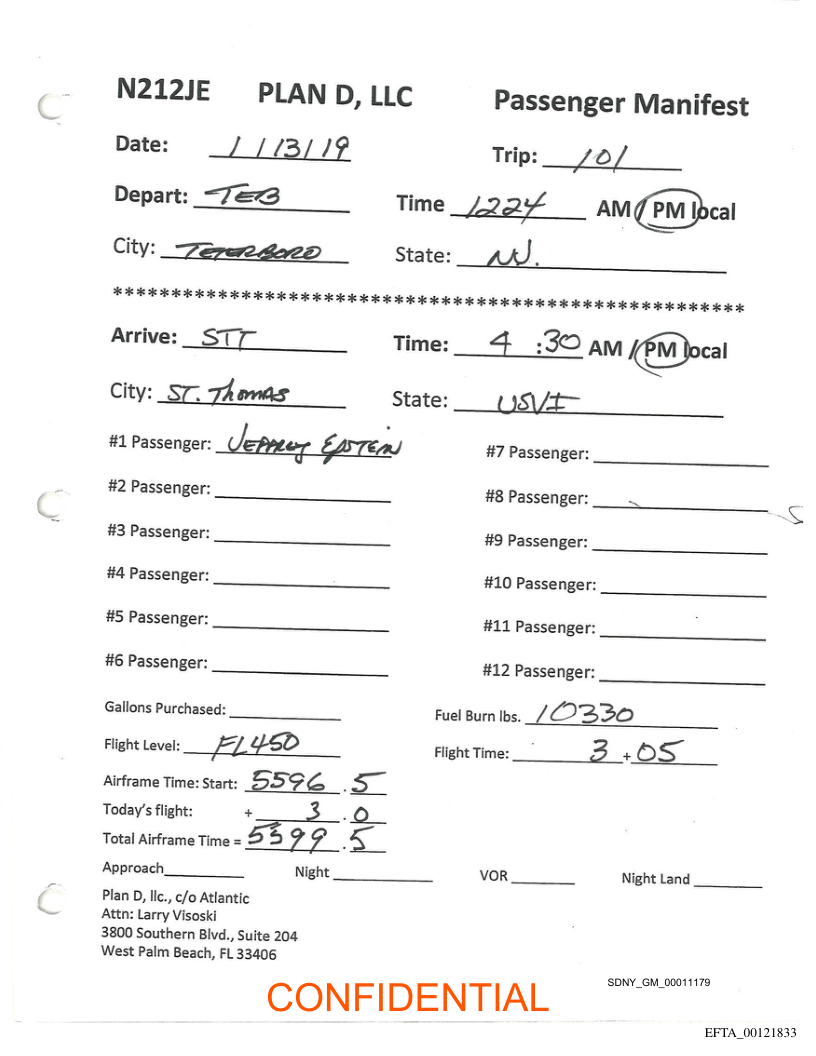 N212JE PLAN D, LLC Passenger Manifest
Date: 1/13/19 Trip: 101
Depart: TEB Time 1224 AM / PM local
City: TETERBORO State: NJ.
******************************************************
Arrive: STT Time: 4:30 AM / PM local
City: ST. Thomas State: USVI
#1 Passenger: Jeffrey Epstein #7 Passenger:
#2 Passenger: #8 Passenger:
#3 Passenger: #9 Passenger:
#4 Passenger: #10 Passenger:
#5 Passenger: #11 Passenger:
#6 Passenger: #12 Passenger:
Gallons Purchased: Fuel Burn lbs. 10330
Flight Level: FL450 Flight Time: 3 + 05
Airframe Time: Start: 5596.5
Today's flight: + 3.0
Total Airframe Time = 5599.5
Approach Night VOR Night Land
Plan D, llc., c/o Atlantic
Attn: Larry Visoski
3800 Southern Blvd., Suite 204
West Palm Beach, FL 33406
SDNY_GM_00011179
CONFIDENTIAL
EFTA_00121833